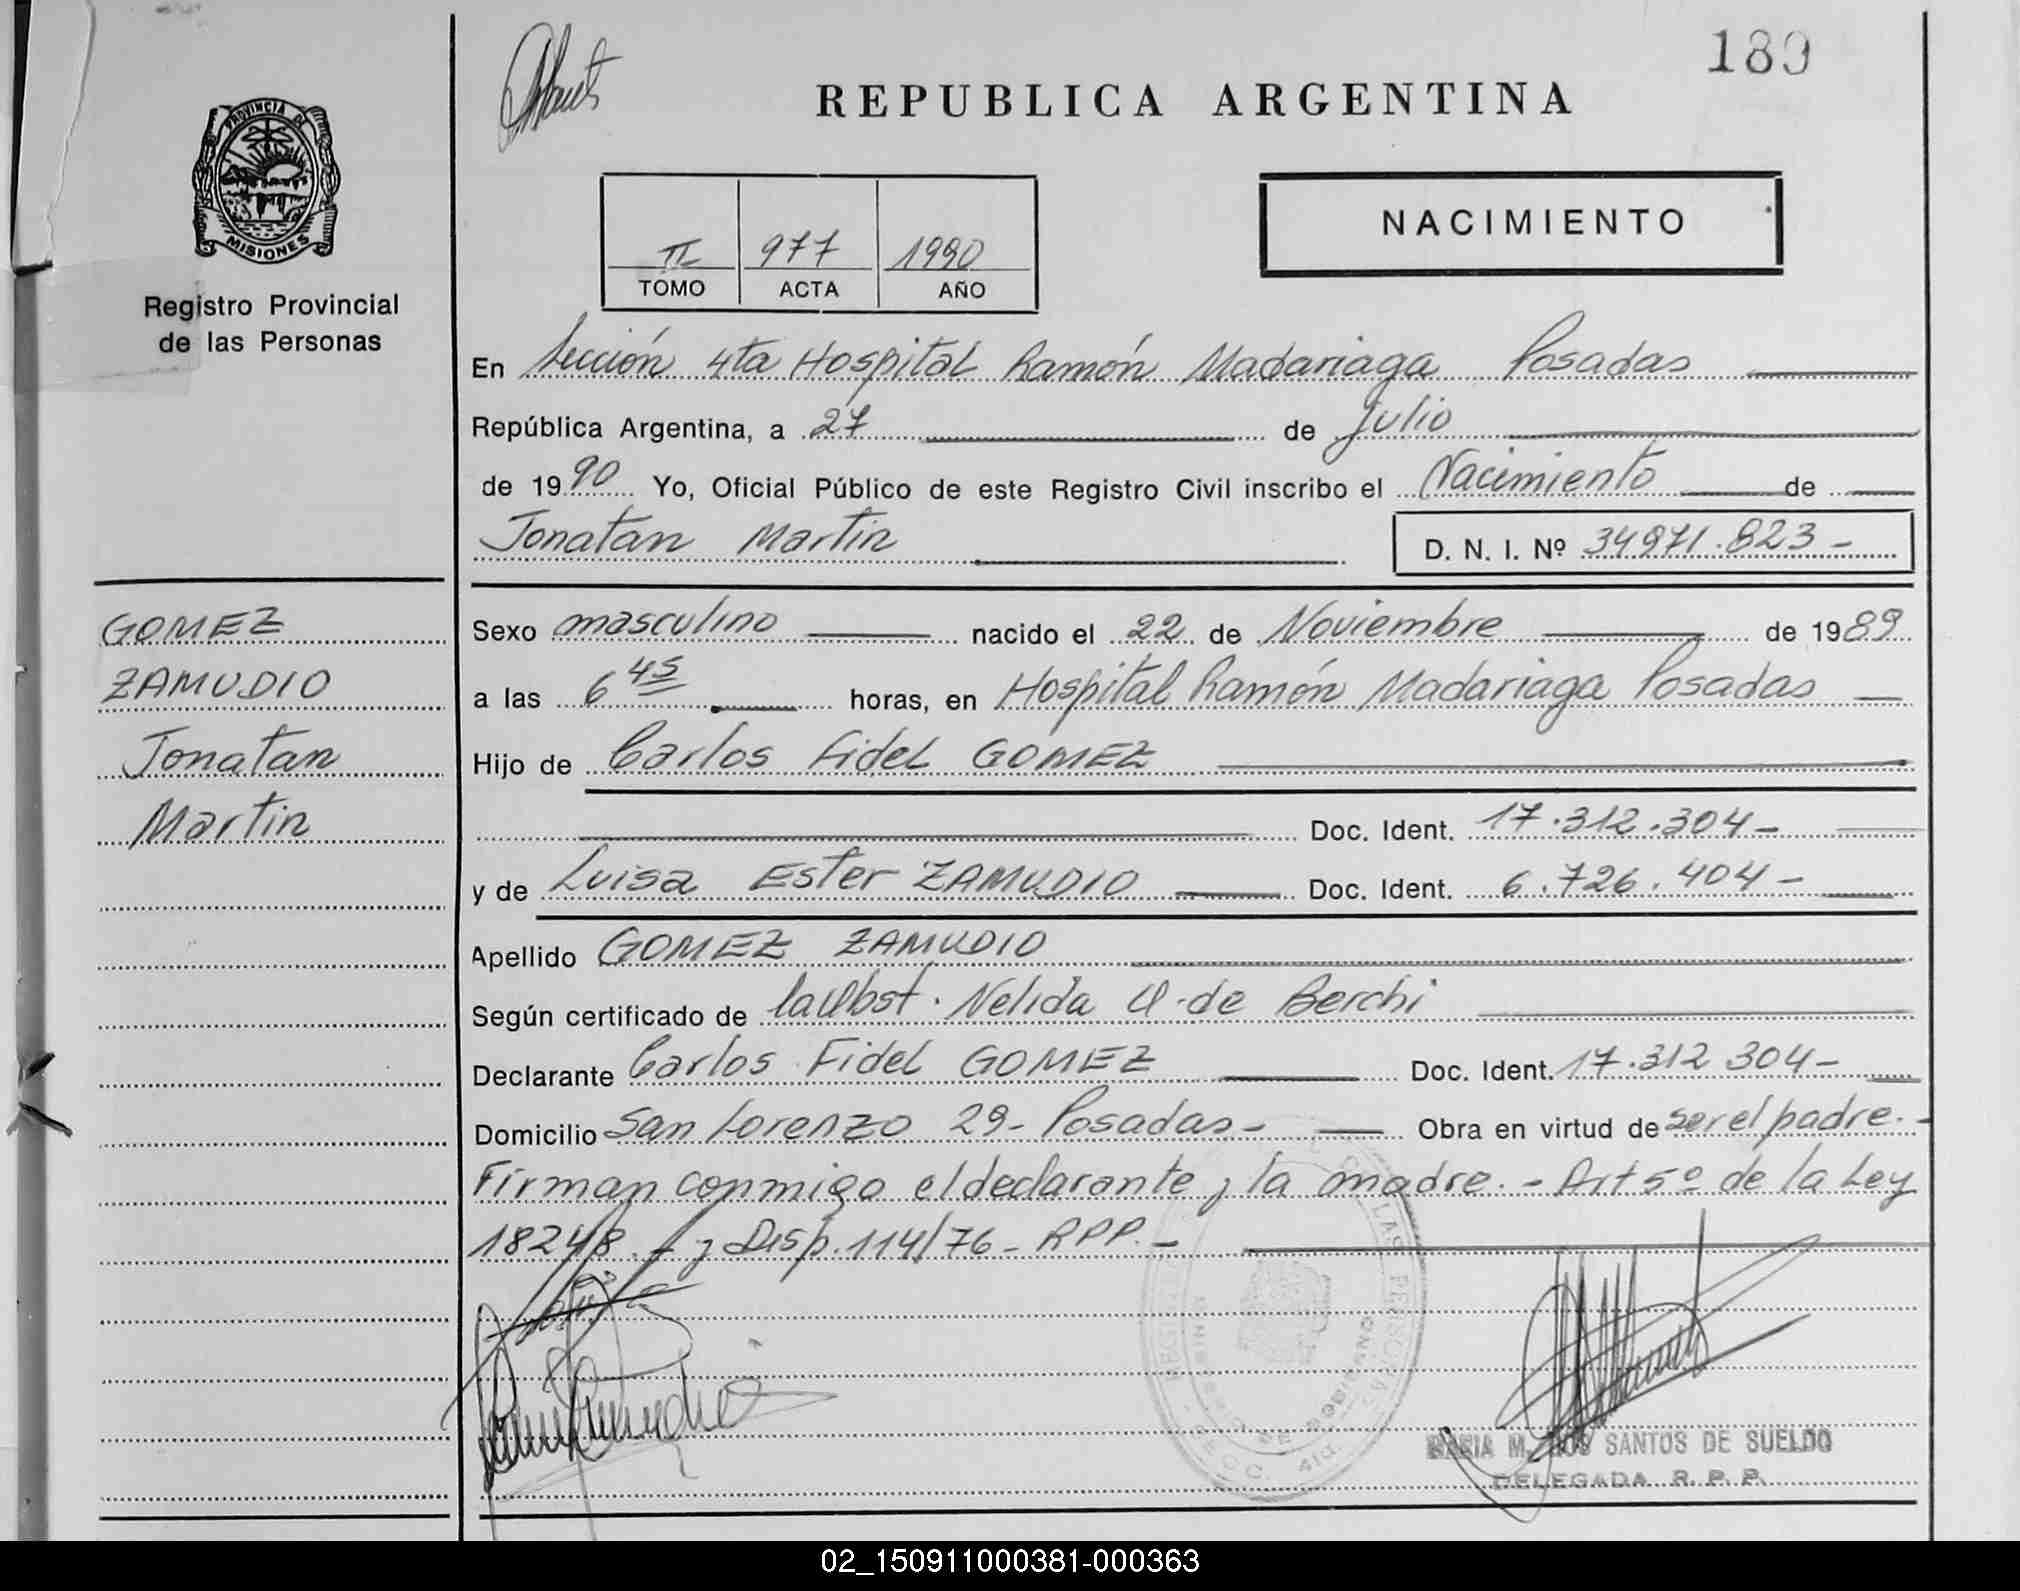 189
REPUBLICA ARGENTINA
PROVINCIA DE
MISIONES
Registro Provincial
de las Personas
NACIMIENTO
II 977 1990
TOMO ACTA AÑO
En Sección 4ta Hospital Ramón Madariaga Posadas
República Argentina, a 27 de Julio
de 1990 Yo, Oficial Público de este Registro Civil inscribo el Nacimiento de
Jonatan Martin D. N. I. Nº 34971.823-
GOMEZ
ZAMUDIO
Jonatan
Martin
Sexo masculino nacido el 22 de Noviembre de 1989
a las 6 45 horas, en Hospital Ramón Madariaga Posadas
Hijo de Carlos Fidel GOMEZ
Doc. Ident. 17.312.304-
y de Luisa Ester ZAMUDIO Doc. Ident. 6.726.404-
Apellido GOMEZ ZAMUDIO
Según certificado de la Obst. Nelida de Berchi
Declarante Carlos Fidel GOMEZ Doc. Ident. 17.312 304-
Domicilio San Lorenzo 29- Posadas- Obra en virtud de ser el padre.-
Firman conmigo el declarante y la madre.- Art 5º de la Ley
18248.- y Disp. 114/76- RPP.-
MARIA M. DOS SANTOS DE SUELDO
DELEGADA R. P. P.
02_150911000381-000363